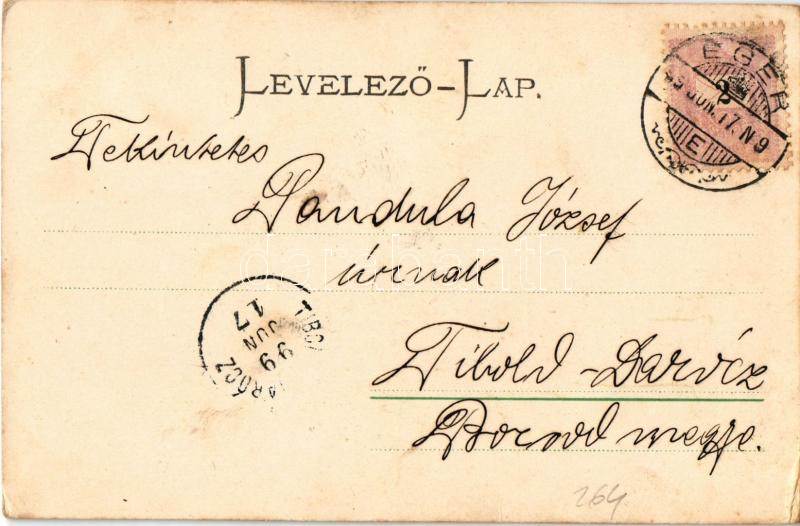 LEVELEZŐ-LAP.
EGER
99 JUN. 17. N 9
2
E
Tekintetes
Dandula József
úrnak
darabanth
TIBOLD
DARÓCZ
99
JUN
17
Tibold-Darócz
Borsod megye.
264